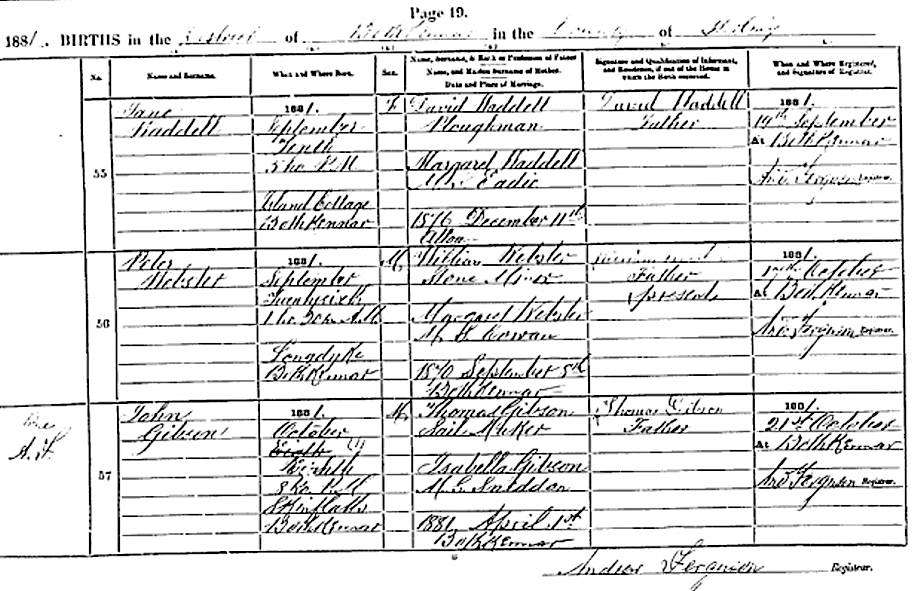 Page 19.
1881. BIRTHS in the District of Bothkennar in the County of Stirling
No.
Name and Surname.
When and Where Born.
Sex.
Name, Surname, & Rank or Profession of Father
Name, and Maiden Surname of Mother.
Date and Place of Marriage.
Signature and Qualification of Informant,
and Residence, if out of the House in
which the Birth occurred.
When and Where Registered,
and Signature of Registrar.
55
Jane
Waddell
1881.
September
Tenth
5 ho P.M
Island Cottage
Bothkennar
F
David Waddell
Ploughman
Margaret Waddell
M. S. Eadie
1876 December 11th
Alloa
David Waddell
Father
1881.
19th September
At Bothkennar
And Ferguson Registrar.
56
Peter
Webster
1881.
September
Twentysixth
1 ho A.M
Longdyke
Bothkennar
M
William Webster
Stone Miner
Margaret Webster
M. S. Cowan
1870 September 8th
Bothkennar
Father
(present)
1881.
October
At Bothkennar
And Ferguson Registrar.
A. F.
57
John
Gibson
1881.
October
Eighth
8 ho P.M
Skinflats
Bothkennar
M
Thomas Gibson
Sail Maker
Isabella Gibson
M. S. Sneddon
1881 April 1st
Bothkennar
Thomas Gibson
Father
1881.
21st October
At Bothkennar
And Ferguson Registrar.
Andrew Ferguson Registrar.